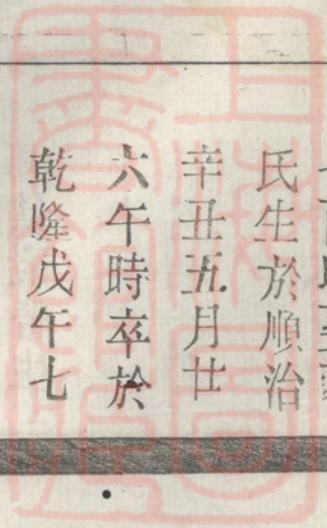 氏生於順治
辛丑五月廿
六午時卒於
乾隆戊午七